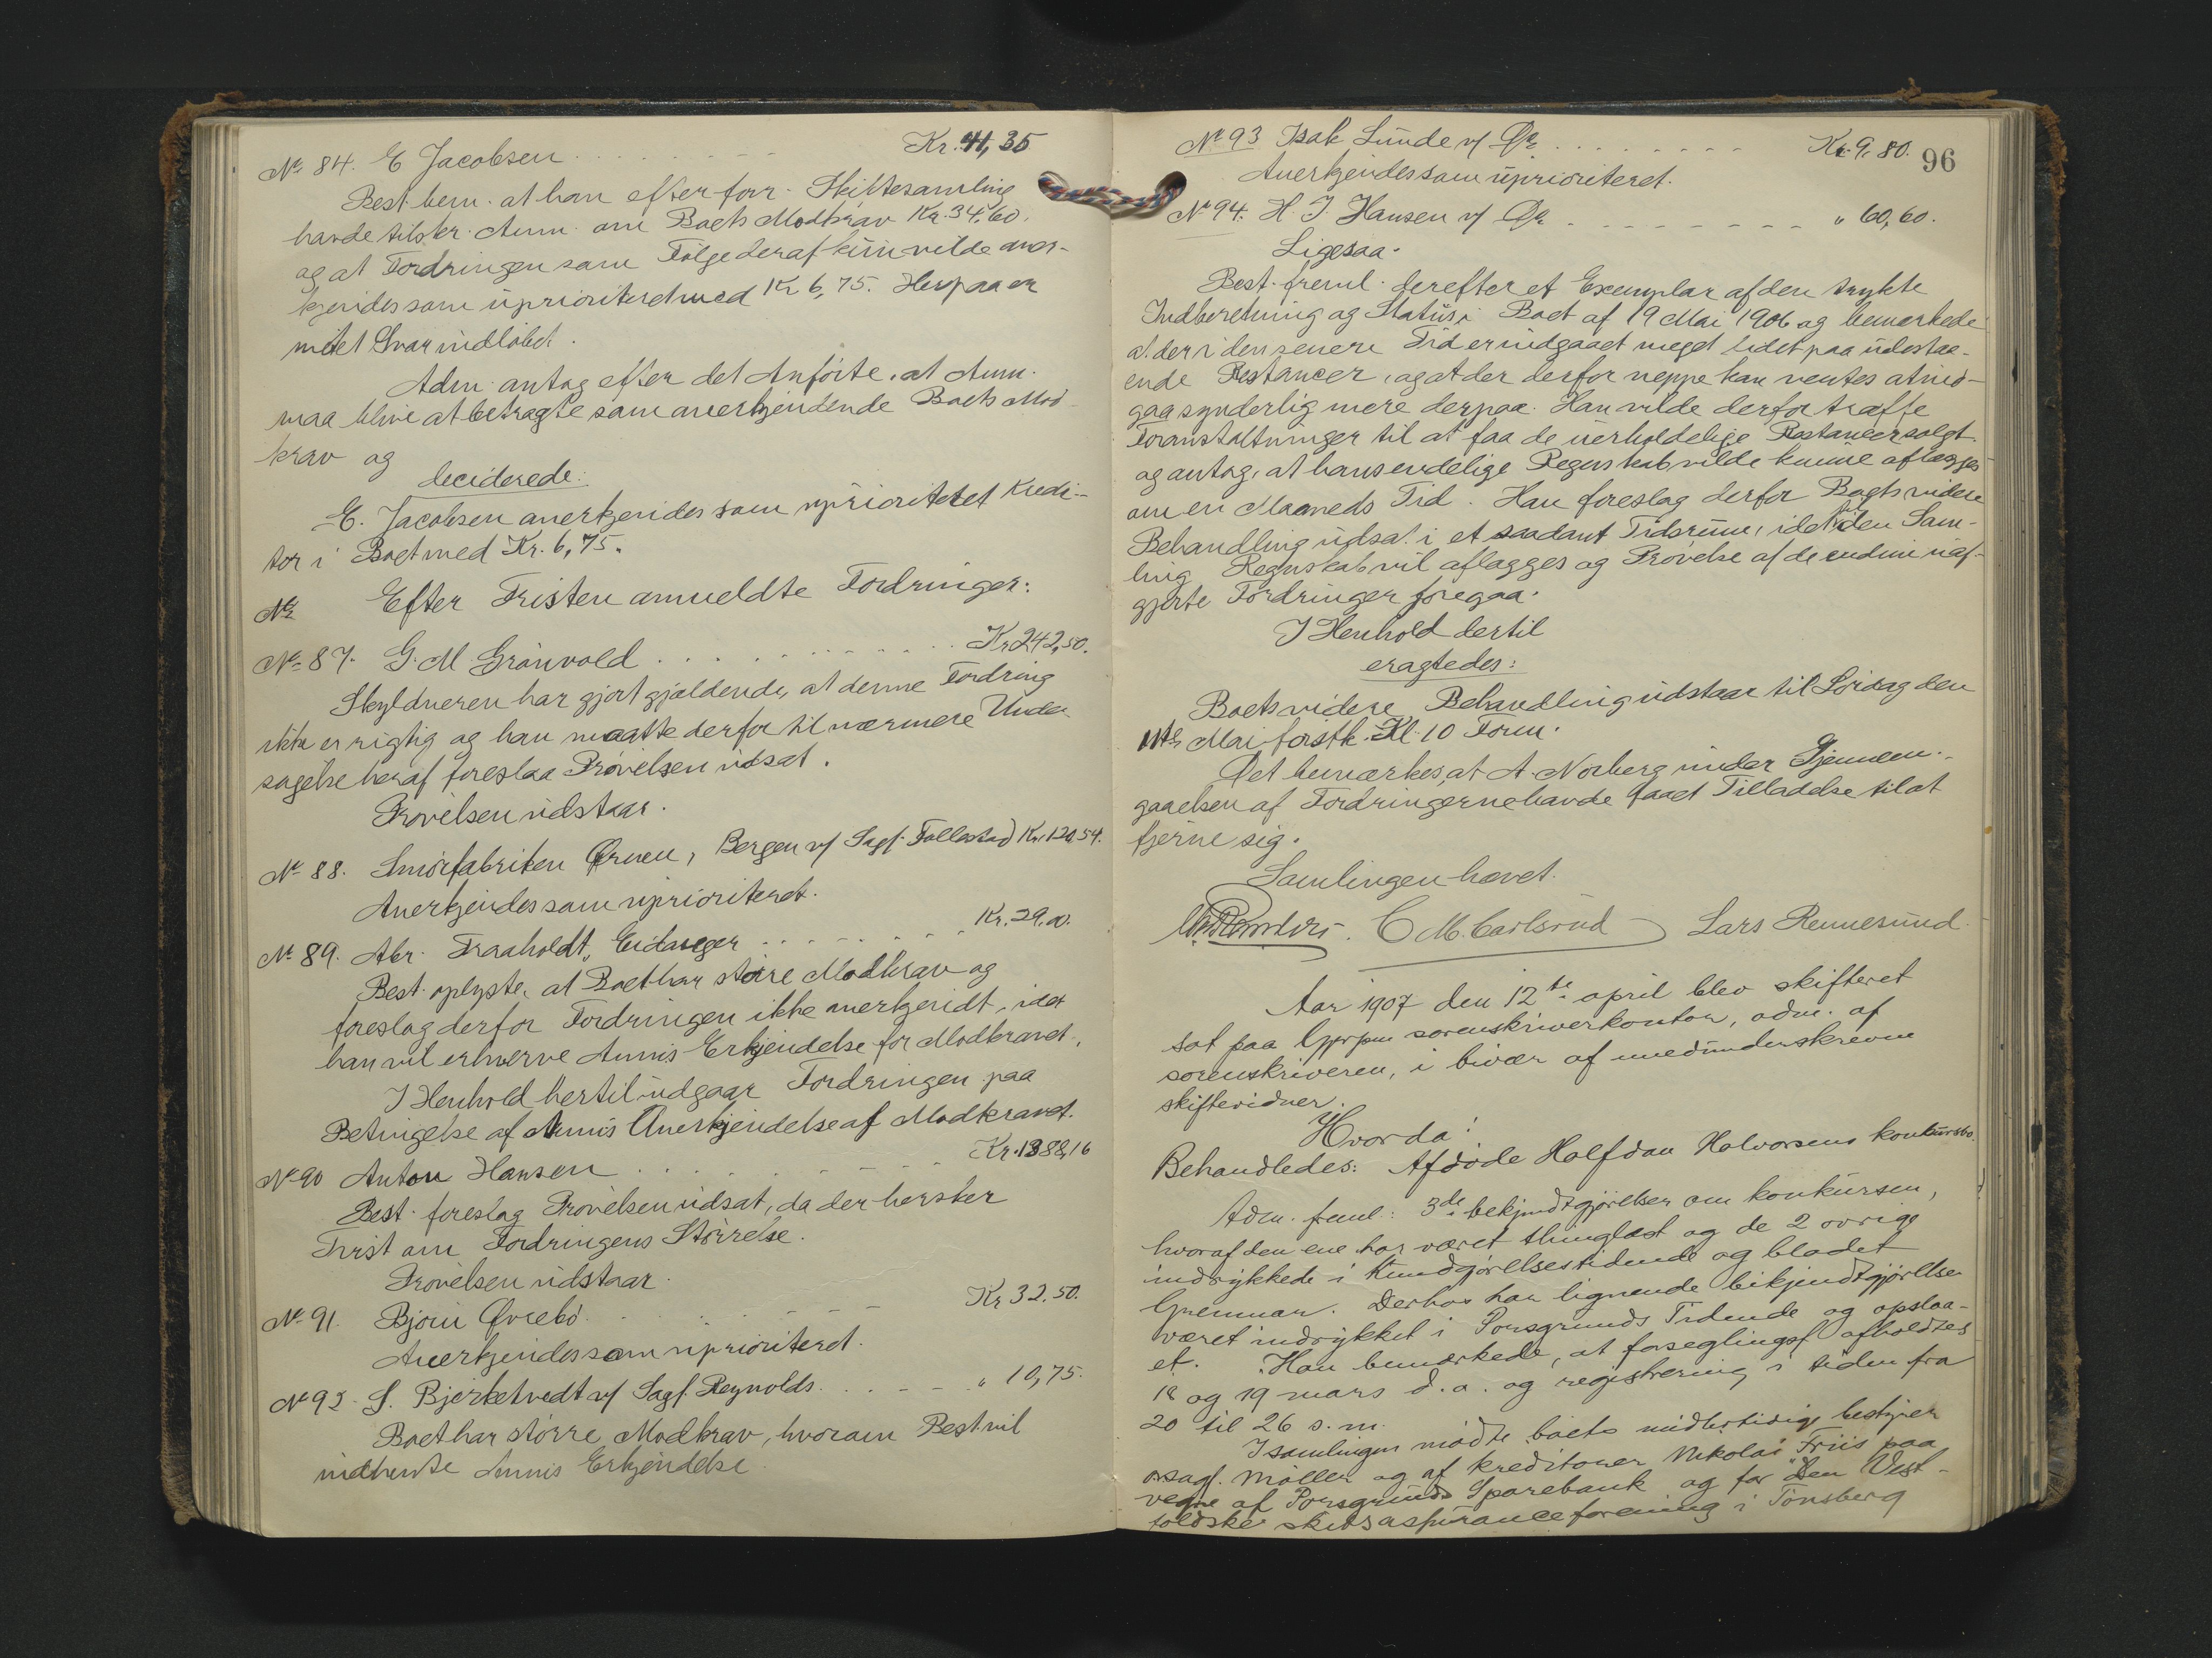 No 84. E Jacobsen . . . . . . . . Kr. 41,35
Best. bem. at han efter forr. Skiftesamling
havde tilskr. Anm. om Boets Modkrav Kr. 34.60.
og at Fordringen som Følge deraf kun vilde aner-
kjendes som uprioriteret med Kr 6,75. Herpaa er
intet Svar indløbet.
Adm. antog efter det Anførte, at Anm.
maa blive at betragte som anerkjendende Boets Mod-
krav og
deciderede:
E. Jacobsen anerkjendes som uprioriteret Kredi-
tor i Boet med Kr. 6,75.
No Efter Fristen anmeldte Fordringer:
No 87. G. M. Grønvold . . . . . . . . . . Kr 242,50.
Skyldneren har gjort gjældende, at denne Fordring
ikke er rigtig og han maatte derfor til nærmere Under
søgelse heraf foreslaa Prøvelsen udsat.
Prøvelsen udstaar.
No 88. Smørfabriken Ørnen, Bergen v/ Sagf. Follestad Kr. 120,54.
Anerkjendes som uprioriteret.
No 89. Abr. Traaholdt, Eidanger . . . . . . . Kr. 29,00.
Best. oplyste, at Boet har større Modkrav og
foreslog derfor Fordringen ikke anerkjendt, idet
han vil erhverve Anm's Erkjendelse for Modkravet.
I Henhold hertil udgaar Fordringen paa
Betingelse af Anm's Anerkjendelse af Modkravet.
No 90 Anton Hansen . . . . . . . . . Kr. 1388,16
Best. foreslog Prøvelsen udsat, da der hersker
Tvist om Fordringens Størrelse.
Prøvelsen udstaar.
No 91. Bjørn Øvrebø . . . . . . . Kr 32.50.
Anerkjendes som uprioriteret.
No 92. S. Bjerketvedt v/ Sagf. Reynolds . . . . . " 10,75.
Boet har større Modkrav, hvorom Best. vil
indhente Anm's Erkjendelse.
96
No 93 Isak Lunde v/ Do . . . . . . . . Kr. 9,80.
Anerkjendes som uprioriteret.
No 94. H. J. Hansen v/ Do . . . . . . . . " 60,60.
Ligesaa.
Best. freml. derefter et Exemplar af den trykte
Indberetning og Status i Boet af 19 Mai 1906 og bemerkede
at der i den senere Tid er indgaaet meget lidet paa udestaa-
ende Restancer, og at der derfor neppe kan ventes at ind-
gaa synderlig mere derpaa. Han vilde derfor træffe
Foranstaltninger til at faa de uerholdelige Restancer solgt
og antog, at hans endelige Regnskab vilde kunne aflægges
om en Maaneds Tid. Han foreslog derfor Boets videre
Behandling udsat i et saadant Tidsrum, idet i den Sam-
ling Regnskab vil aflægges og Prøvelse af de endnu uaf-
gjorte Fordringer foregaa.
I Henhold dertil
eragtedes:
Boets videre Behandling udstaar til Lørdag den
11te Mai førstk. Kl. 10 Form.
Det bemærkes, at A. Norberg under Gjennem-
gaaelsen af Fordringerne havde faaet Tilladelse til at
fjerne sig.
Samlingen hævet.
C M. Carlsrud Lars Rennesund
Aar 1907 den 12te april blev skifteret
sat paa Gjerpen sorenskriverkontor, adm. af
sorenskriveren, i bivær af medunderskrevne
skiftevidner.
Hvorda:
Behandledes: Afdøde Halfdan Halvorsens konkursbo.
Adm. freml: 3de bekjendtgjørelser om konkursen,
hvoraf den ene har været thinglæst og de 2 øvrige
indrykkede i Kundgjørelsestidende og bladet
Grenmar. Derhos har lignende bekjendtgjørelse
været indrykket i Porsgrunds Tidende og opslaa-
et. Han bemerkede, at forseglingsf. afholdtes
18 og 19 mars d. a. og registrering i tiden fra
20 til 26 s. m.
I samlingen mødte boets midlertidige bestyrer
osagf. Møller og af kreditorer Nikolai Friis paa
vegne af Porsgrunds Sparebank og for "Den Vest-
foldske skibsassuranceforening i Tønsberg